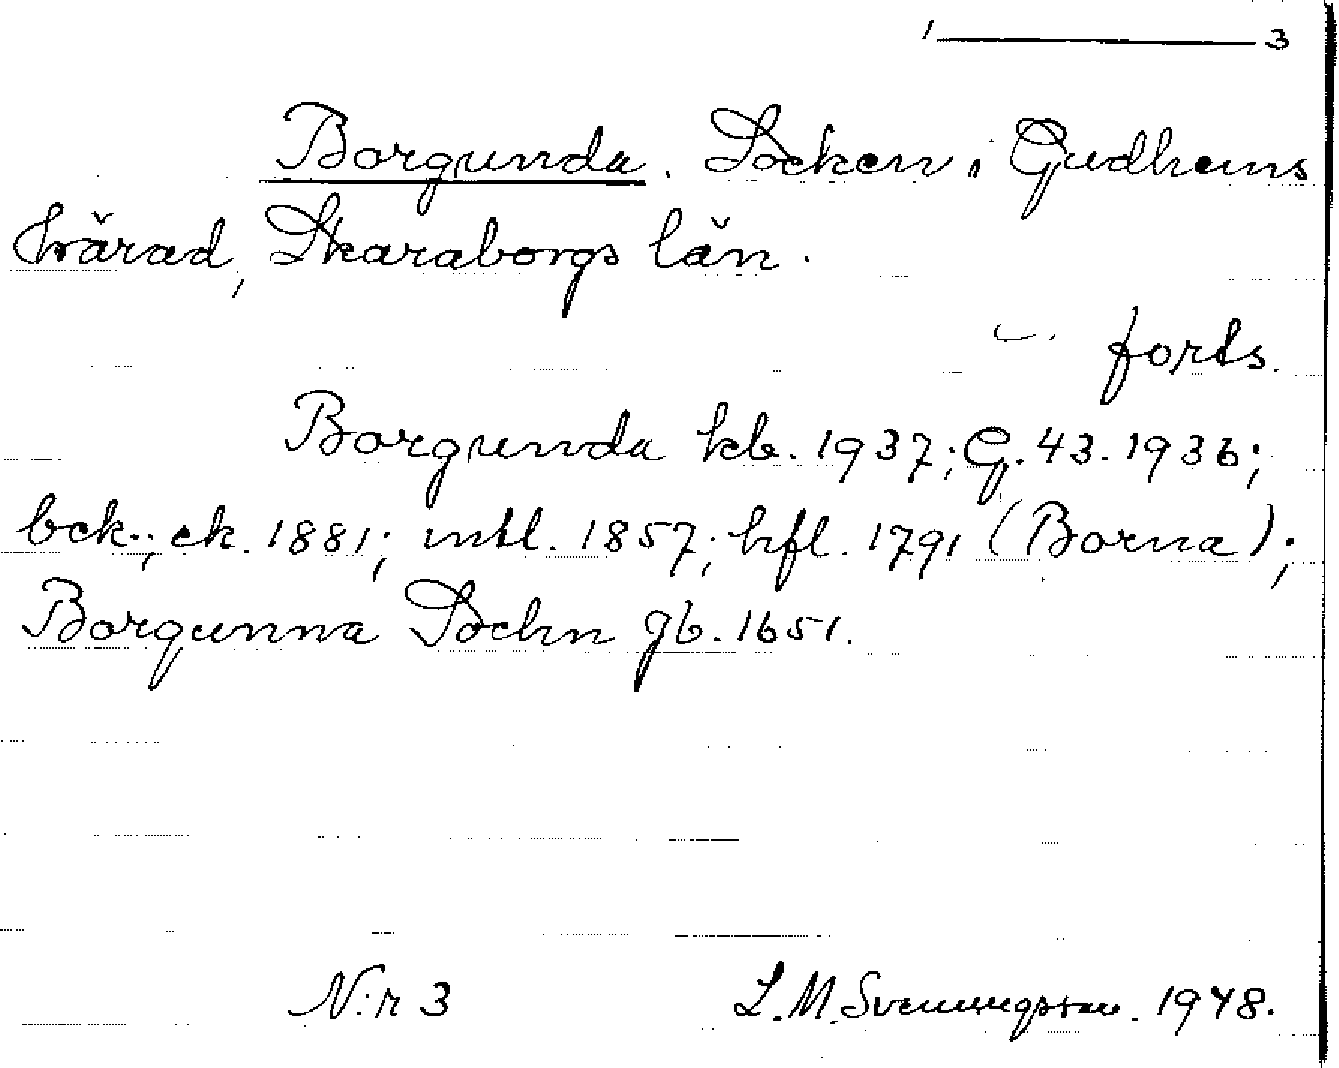 1 — 3
Borgunda. Socken i Gudhems
härad, Skaraborgs län.
forts.
Borgunda kb. 1937; G. 43. 1936;
bek.; ek. 1881; mtl. 1857; hfl. 1791 (Borna);
Borgunna Sochn gb. 1651.
N:r 3 L. M. Svenungsson. 1948.